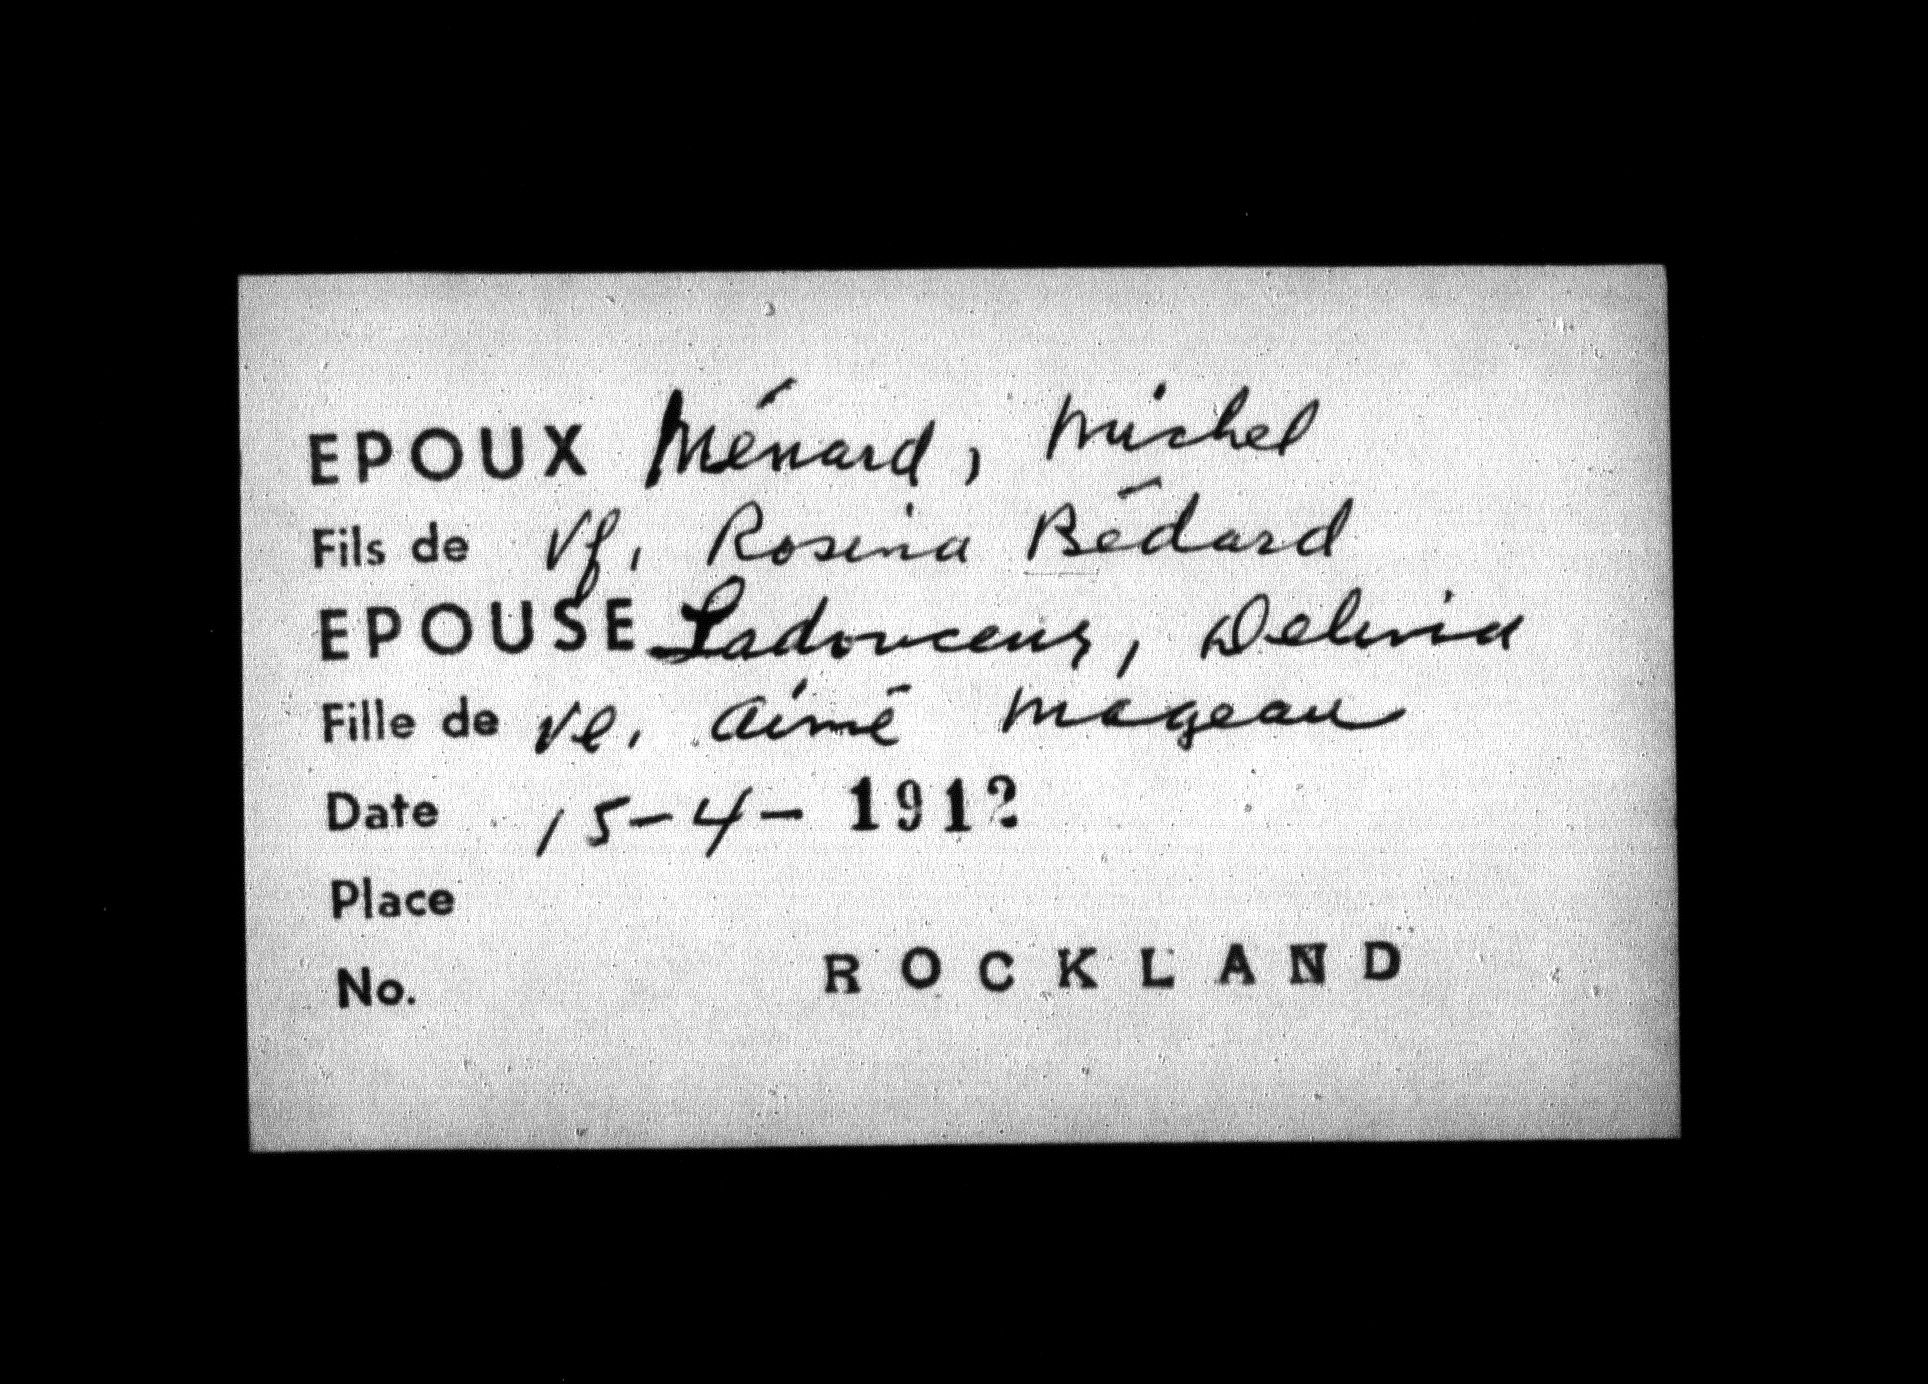 EPOUX Ménard, Michel
Fils de Vf. Rosina Bédard
EPOUSE Ladouceur, Delvia
Fille de Ve. Aimé Mageau
Date 15-4-1912
Place
No. ROCKLAND